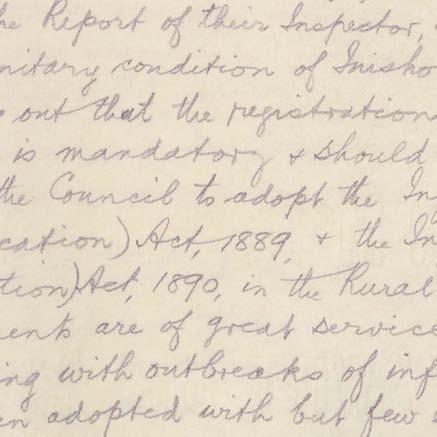 he Report of their Inspector,
nitary condition of Inisho
out that the registration
is mandatory & should
the Council to adopt the In
cation) Act, 1889, & the In
tion) Act, 1890, in the Rural
ents are of great service
ing with outbreaks of inf
en adopted with but few